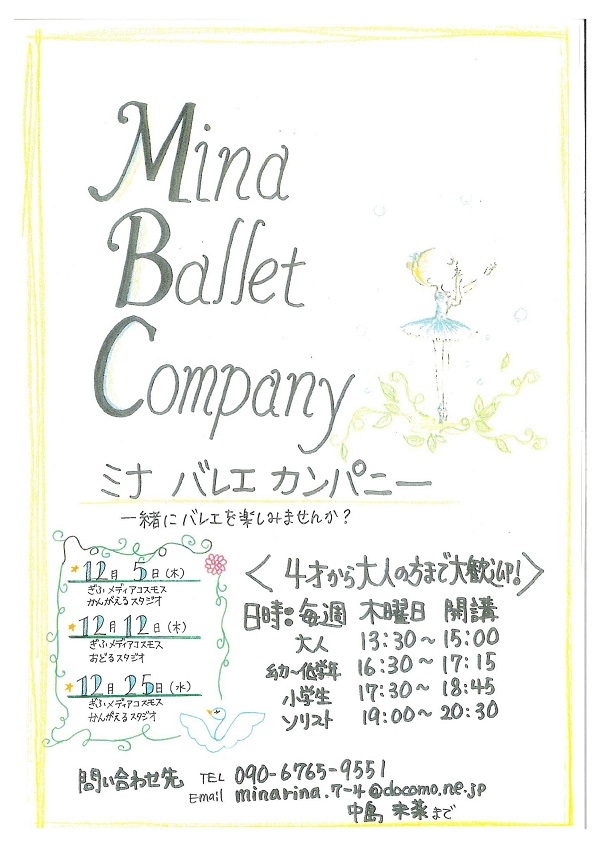 Mina
Ballet
Company
ミナ バレエ カンパニー
一緒にバレエを楽しみませんか？
12月 5日(木)
ぎふメディアコスモス
かんがえるスタジオ
12月 12日(木)
ぎふメディアコスモス
おどるスタジオ
12月 25日(水)
ぎふメディアコスモス
かんがえるスタジオ
〈 4才から大人の方まで大歓迎! 〉
日時:毎週 木曜日 開講
大人 13:30～15:00
幼～低学年 16:30～17:15
小学生 17:30～18:45
ソリスト 19:00～20:30
問い合わせ先 TEL 090-6765-9551
Email minarina.7-4@docomo.ne.jp
中島 未菜まで